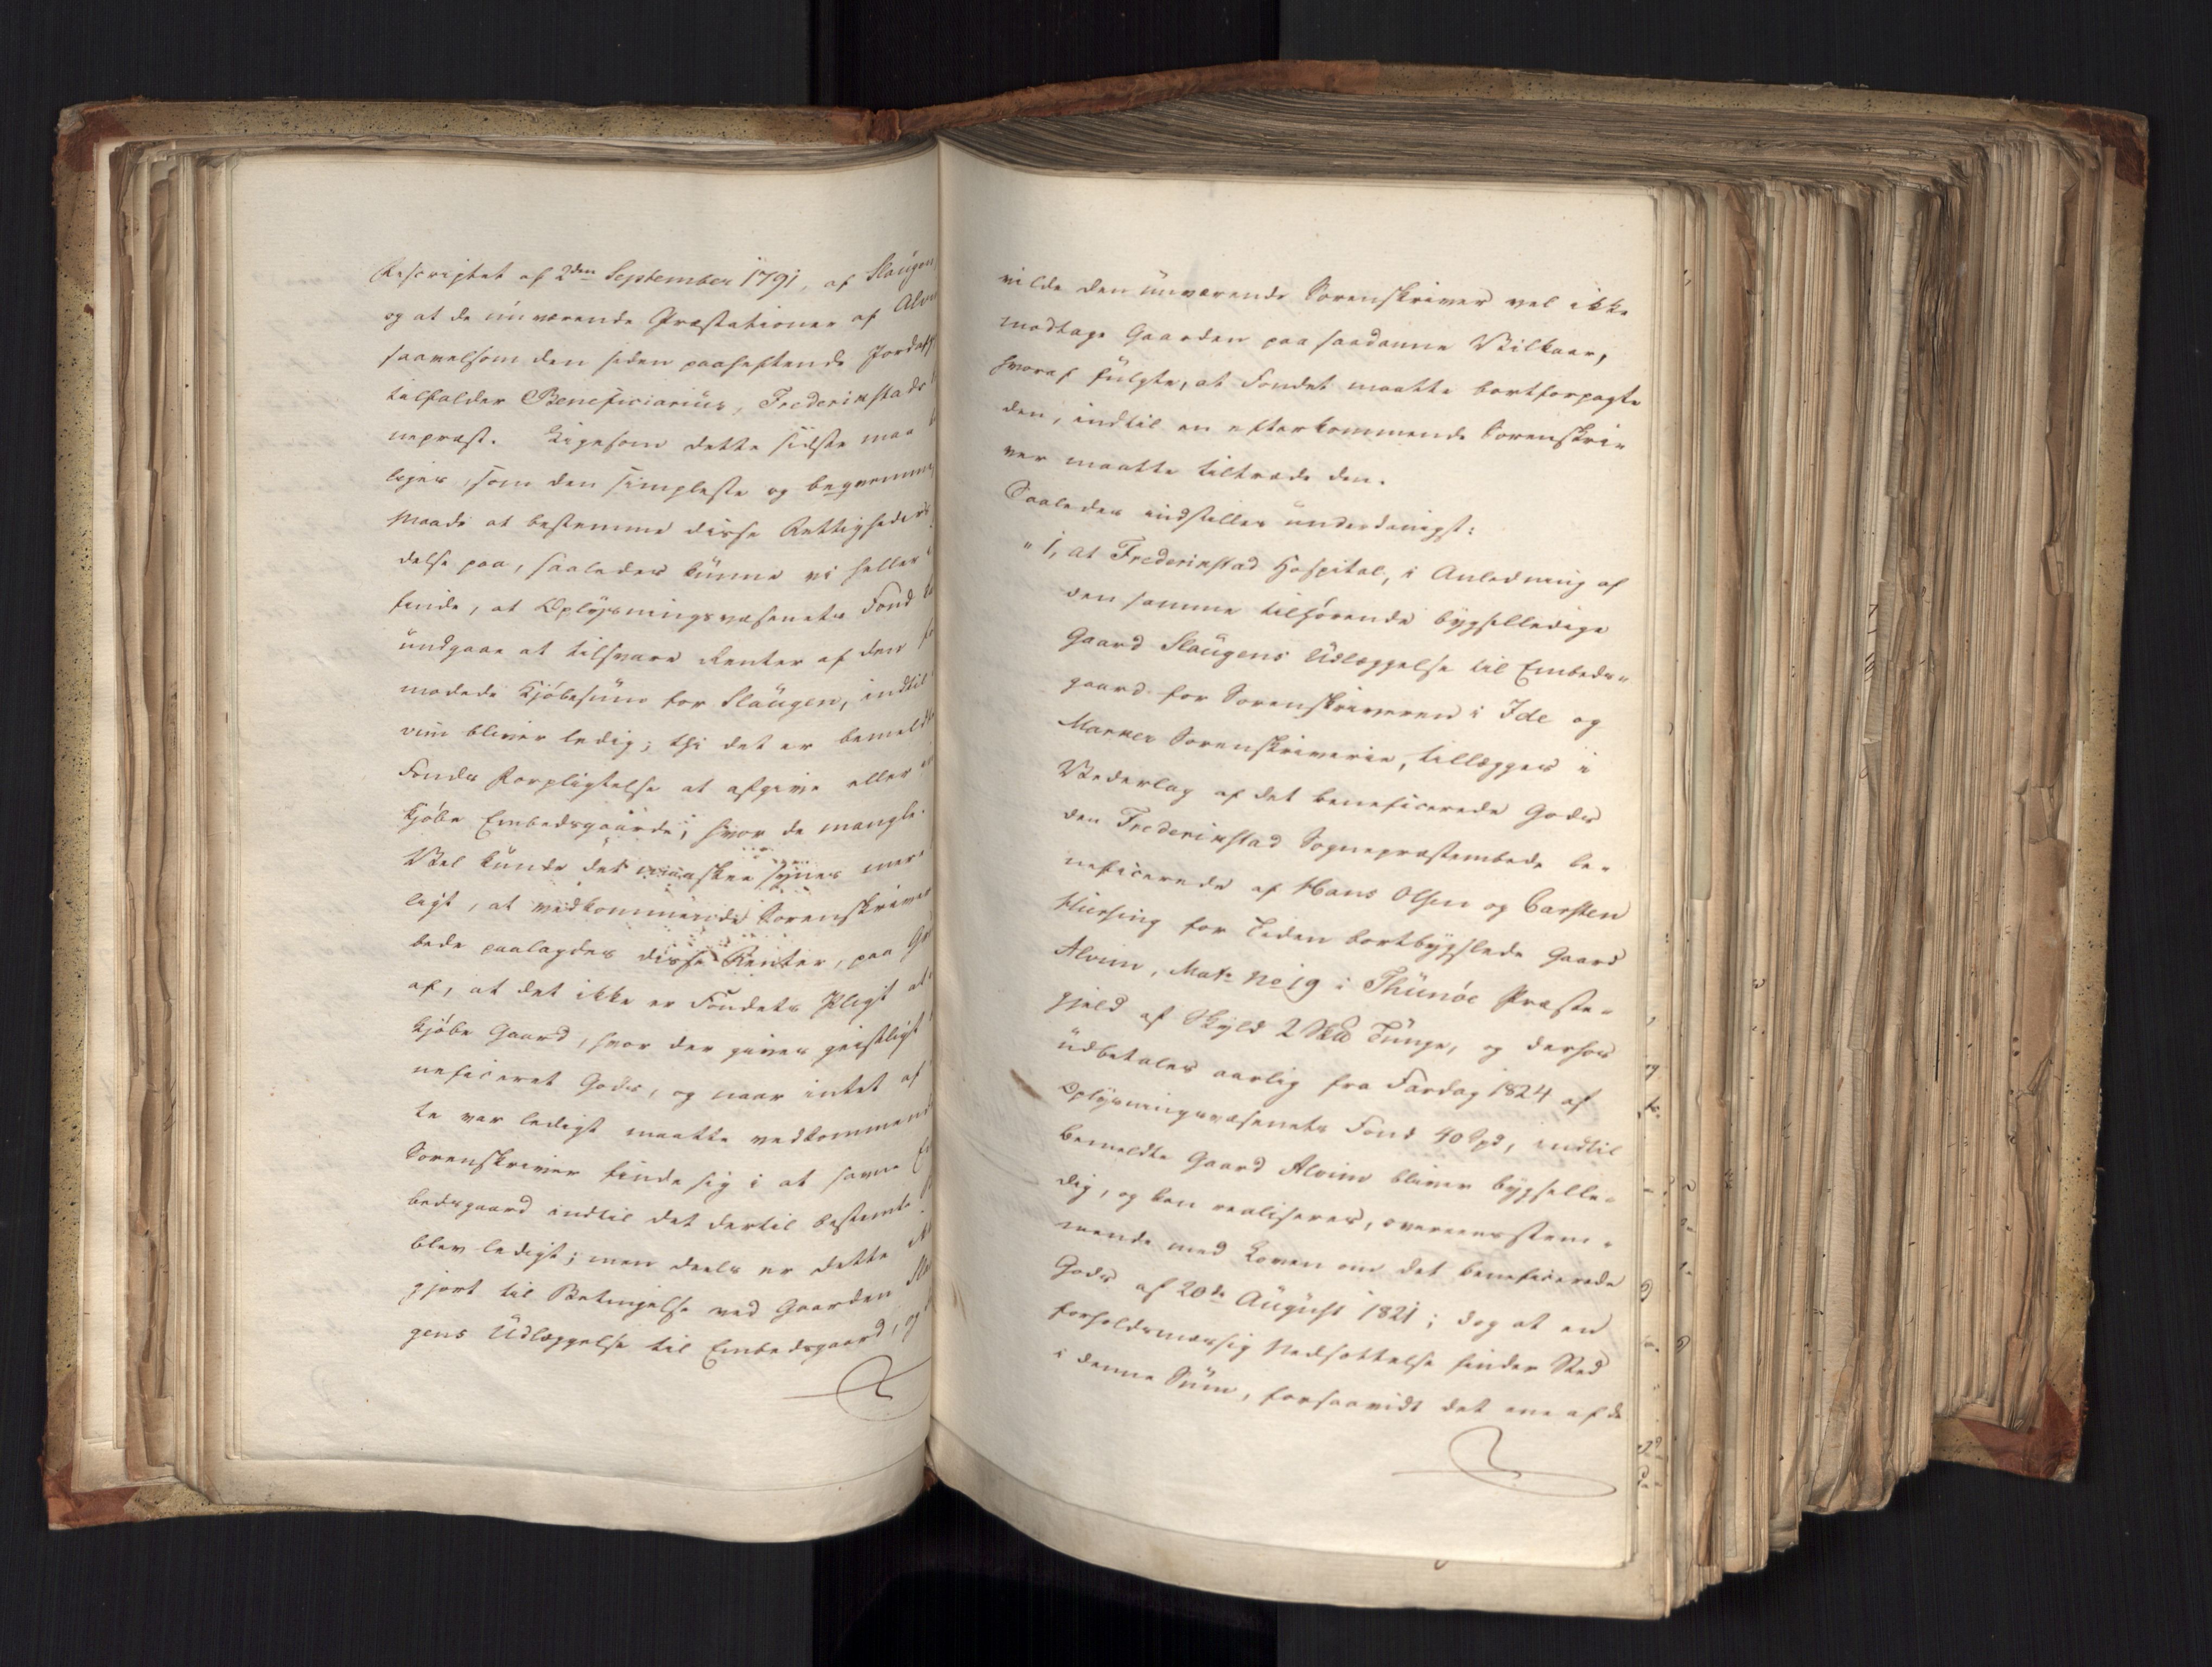 Rescriptet af 2den September 1791, af Slaugen
og at de nuværende Præstationer af Alv
saavelsom den siden paaheftende Jordaf
tilfalder Beneficiarius, Fredrikstads
nepræst. Ligesom dette sidste maa
leges, som den simpleste og beqvemme
Maade at bestemme disse Rettigheders
delse paa, saaledes kunne vi heller
finde, at Oplysningsvæsenets Fond
undgaae at tilsvare Renter af den
modede Kjøbesum for Slaugen, indtil
vim bliver ledig; thi det er bemeldte
Fonds Forpligtelse at afgive eller
kjøbe Embedsgaarde, hvor de mangle.
Vel kunde det maaskee synes mere
ligt, at vedkommende Sorenskriver
bede paalagdes disse Renter, paa Gr
af, at det ikke er Fondets Pligt at
kjøbe Gaard, hvor der gives geistligt
neficeret Gods, og naar intet af
te var ledigt maatte vedkommende
Sorenskriver finde sig i at savne
bedsgaard indtil det dertil bestemte
blev ledigt; men deels er dette
gjort til Betingelse ved Gaarden Sla
gens Udlæggelse til Embedsgaard, og
vilde den nuværende Sorenskriver vel ikke
modtage Gaarden paa saadanne Vilkaar,
hvoraf fulgte, at Fondet maatte bortforpagte
den, indtil en efterkommende Sorenskri-
ver maatte tiltræde den.
Saaledes indstilles underdanigst:
"1, at Fredrikstad Hospital, i Anledning af
den samme tilhørende bygselledige
Gaard Slaugens Udlæggelse til Embeds-
gaard for Sorenskriveren i Ide og
Markers Sorenskriverie, tillægges i
Vederlag af det beneficerede Gods
den Fredrikstad Sognepræstembede be-
neficerede af Hans Olsen og Carsten
for Tiden bortbygslede Gaard
Alvim, Matr No 19 i Thunøe Præste-
gjeld af Skyld 2 Skd Tunge, og derhos
udbetales aarlig fra Fardag 1824 af
Oplysningsvæsenets Fond 40 Spd, indtil
bemeldte Gaard Alvim bliver bygselle-
dig, og kan realiseres, overeensstem-
mende med Loven om det beneficerede
Gods af 20de August 1821; dog at en
forholdsmæssig Nedsættelse finder Sted
i denne Sum, forsaavidt det ene af de